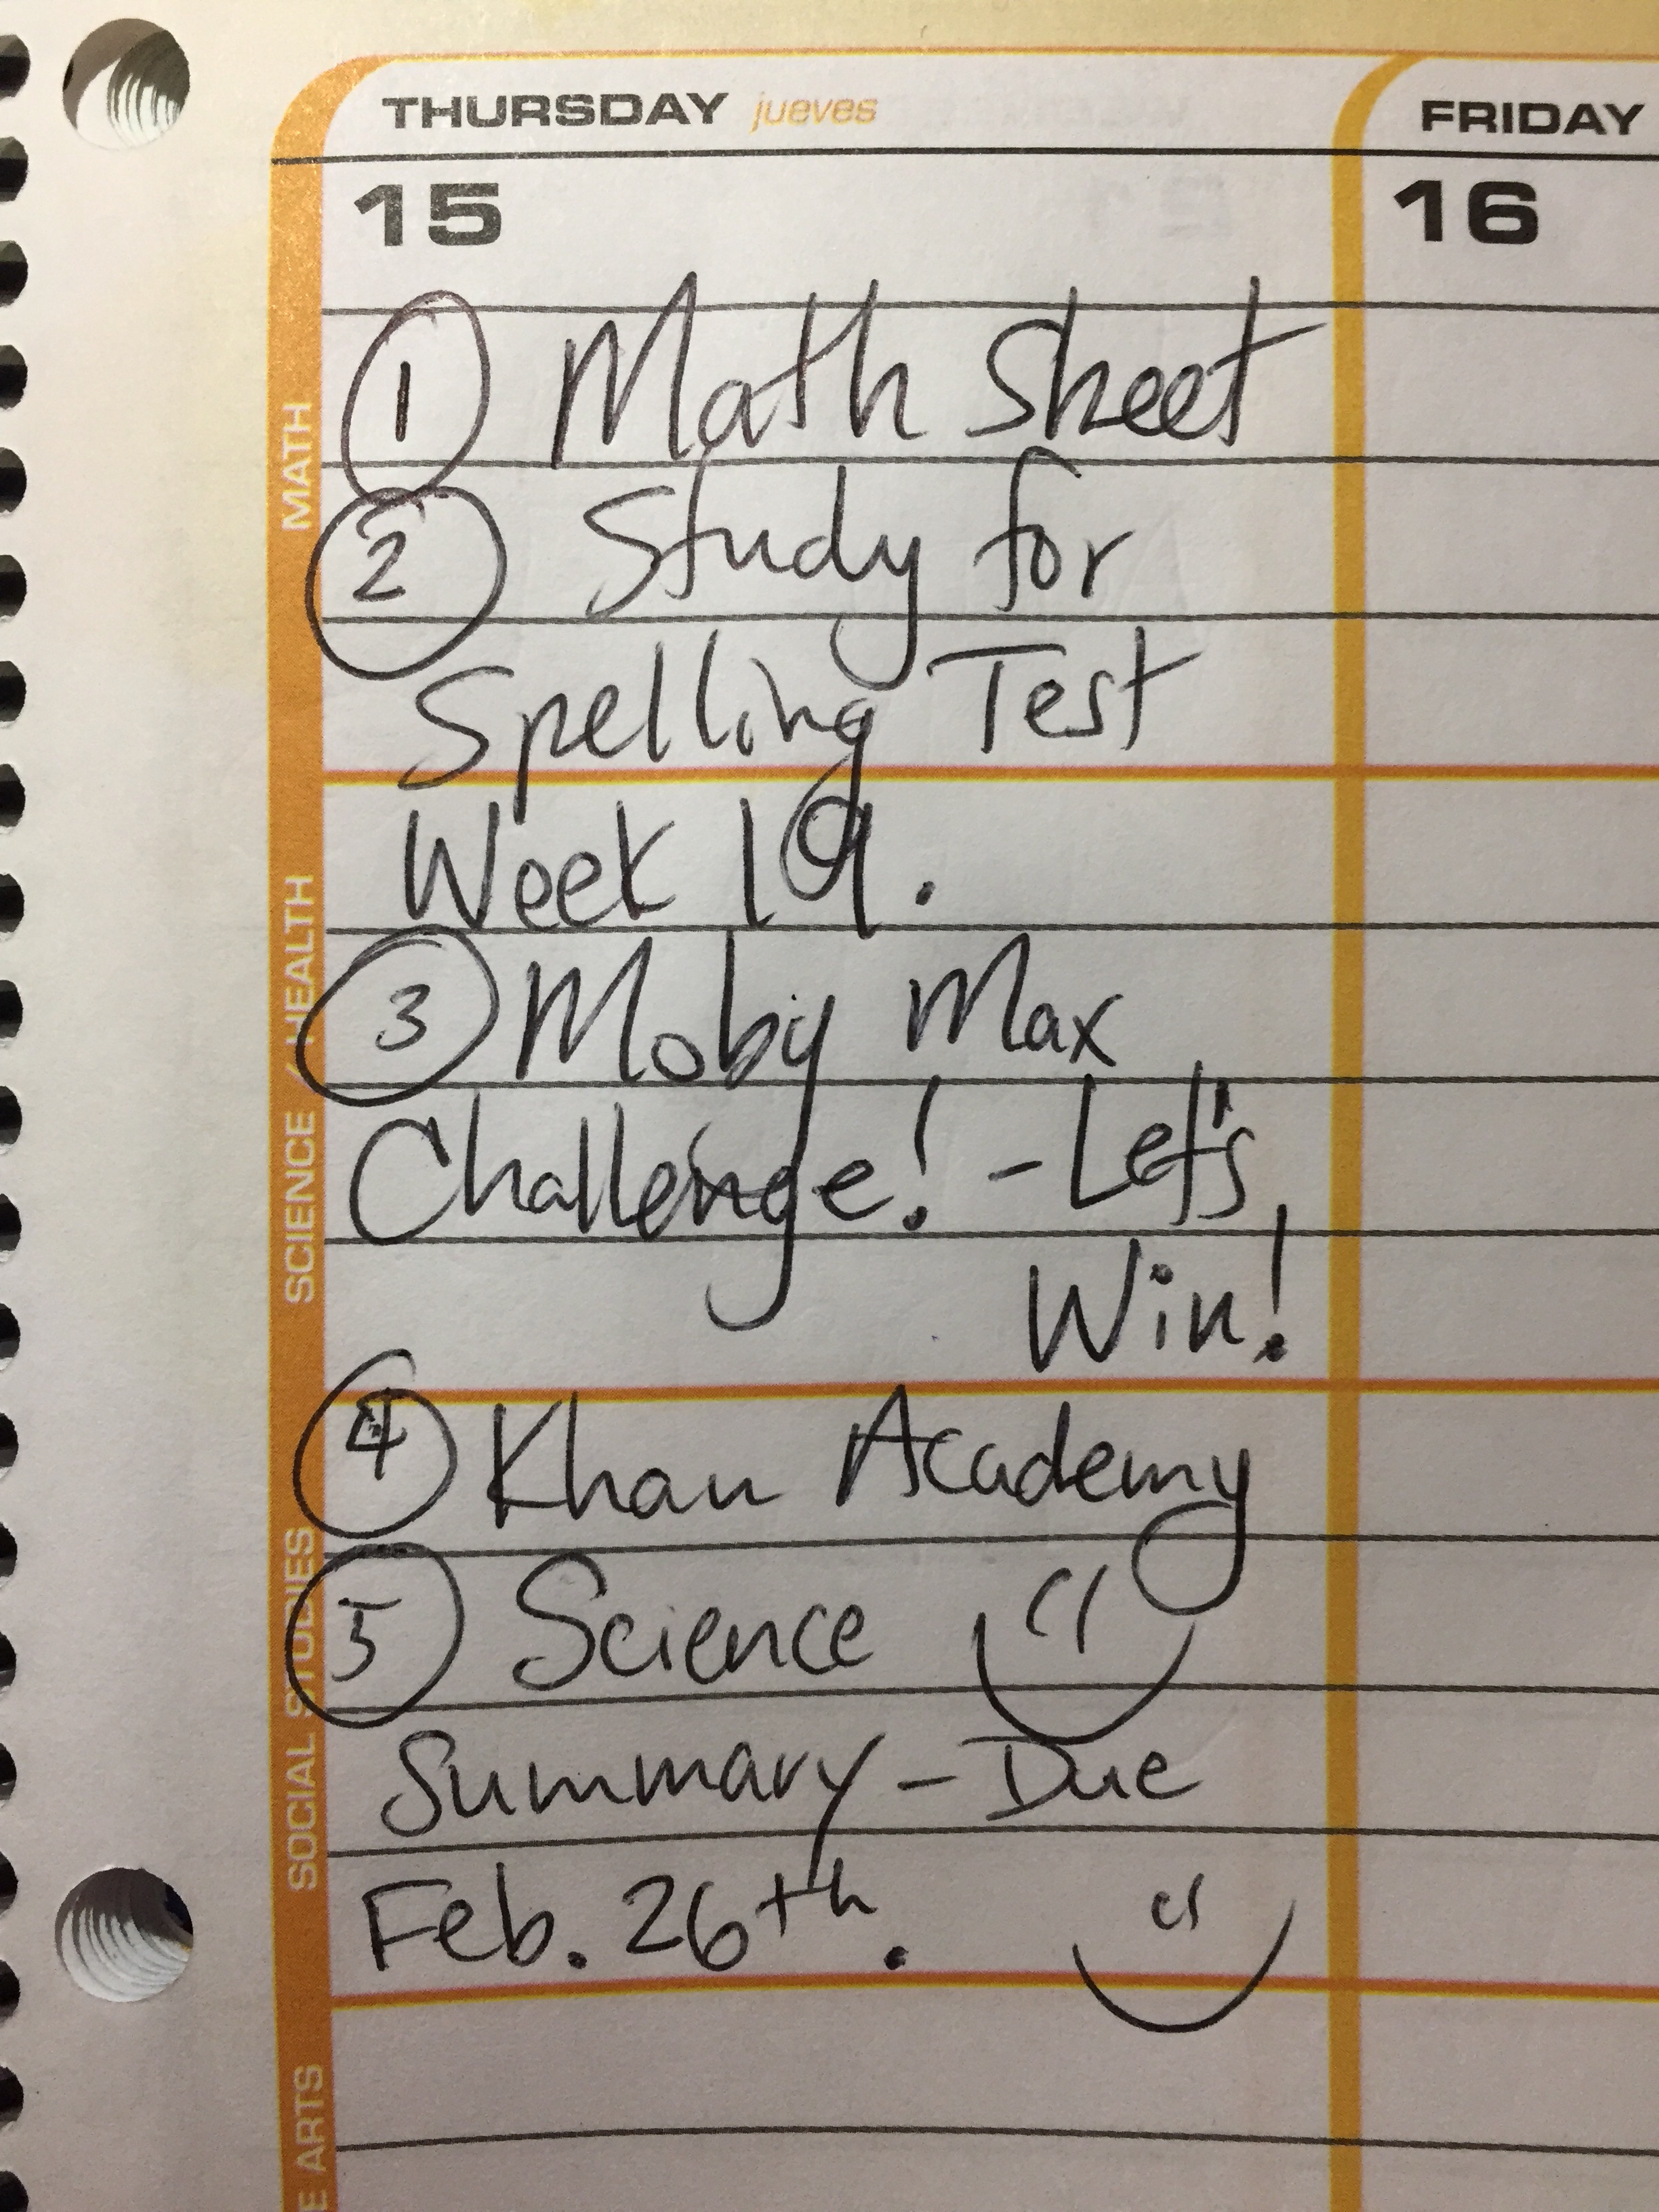 THURSDAY jueves
FRIDAY
15
16
① Math Sheet
② Study for
Spelling Test
Week 19.
③ Moby Max
Challenge! - Let's
Win!
④ Khan Academy
⑤ Science
Summary - Due
Feb. 26th.
MATH
SCIENCE / HEALTH
SOCIAL STUDIES
E ARTS